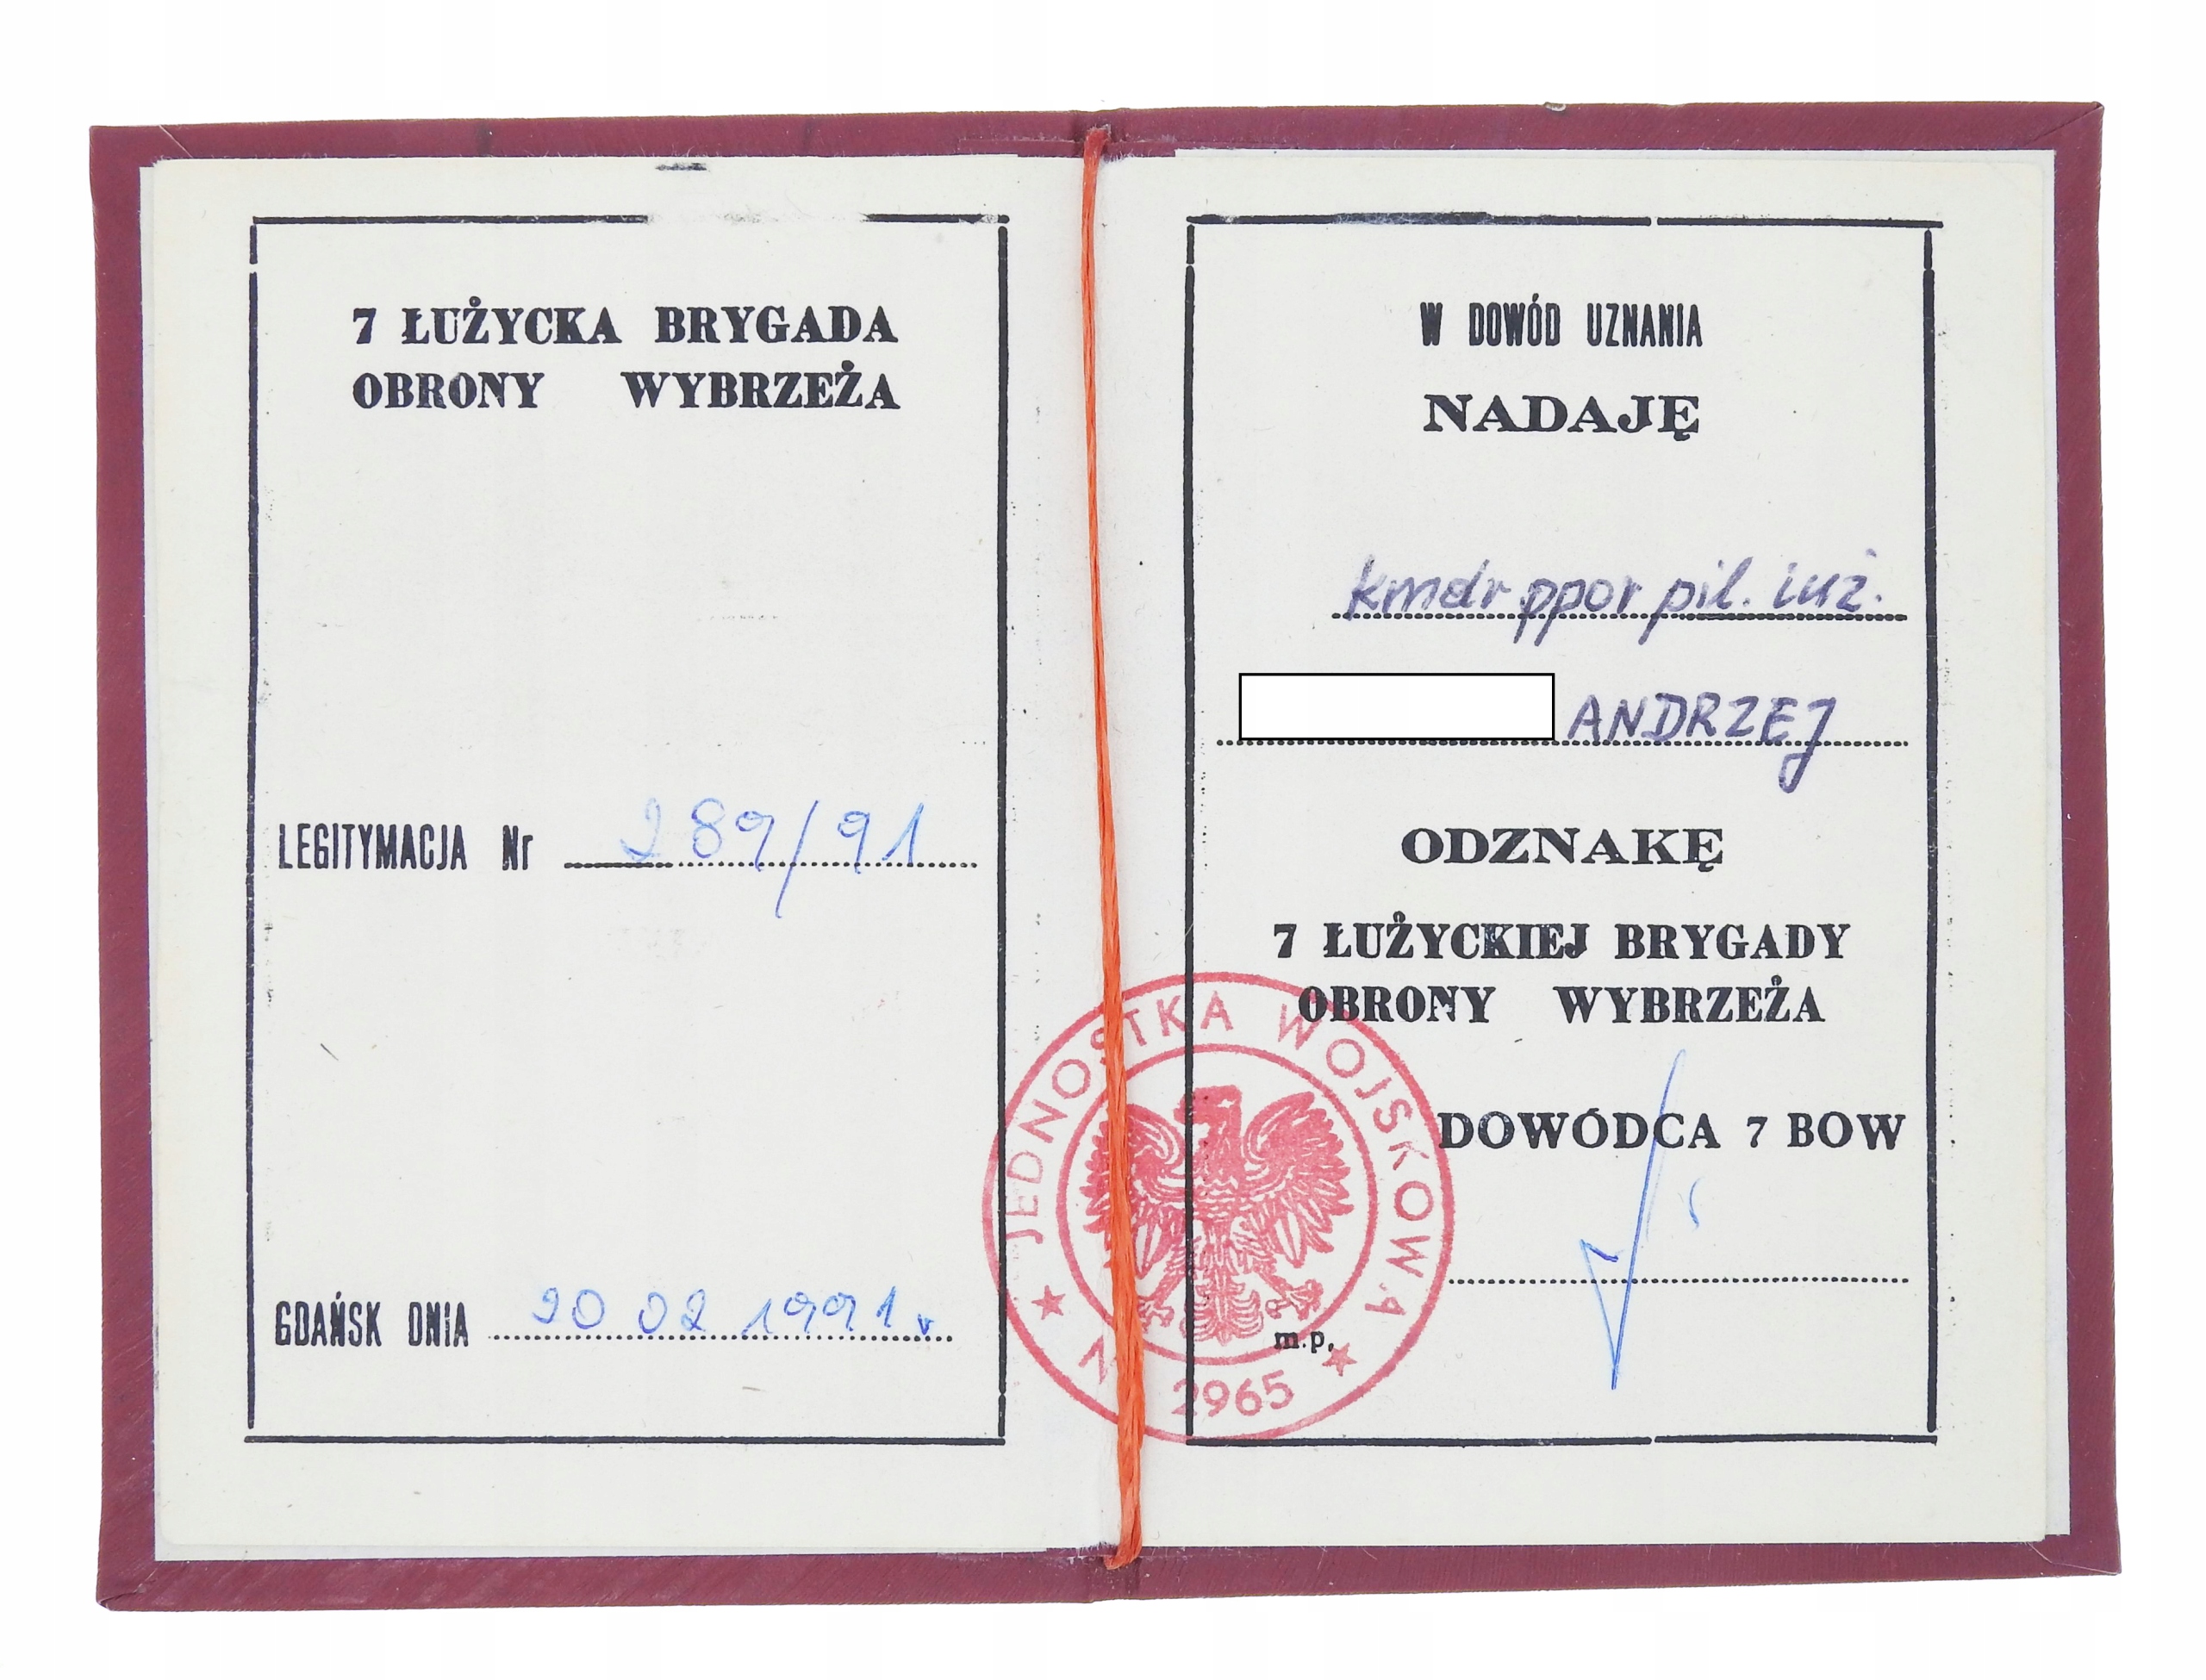 7 ŁUŻYCKA BRYGADA
OBRONY WYBRZEŻA
LEGITYMACJA Nr 289/91
GDAŃSK DNIA 20 02 1991 r
W DOWÓD UZNANIA
NADAJĘ
kmdr ppor pil. inż.
ANDRZEJ
ODZNAKĘ
7 ŁUŻYCKIEJ BRYGADY
OBRONY WYBRZEŻA
DOWÓDCA 7 BOW
m.p.
JEDNOSTKA WOJSKOWA
N 2965